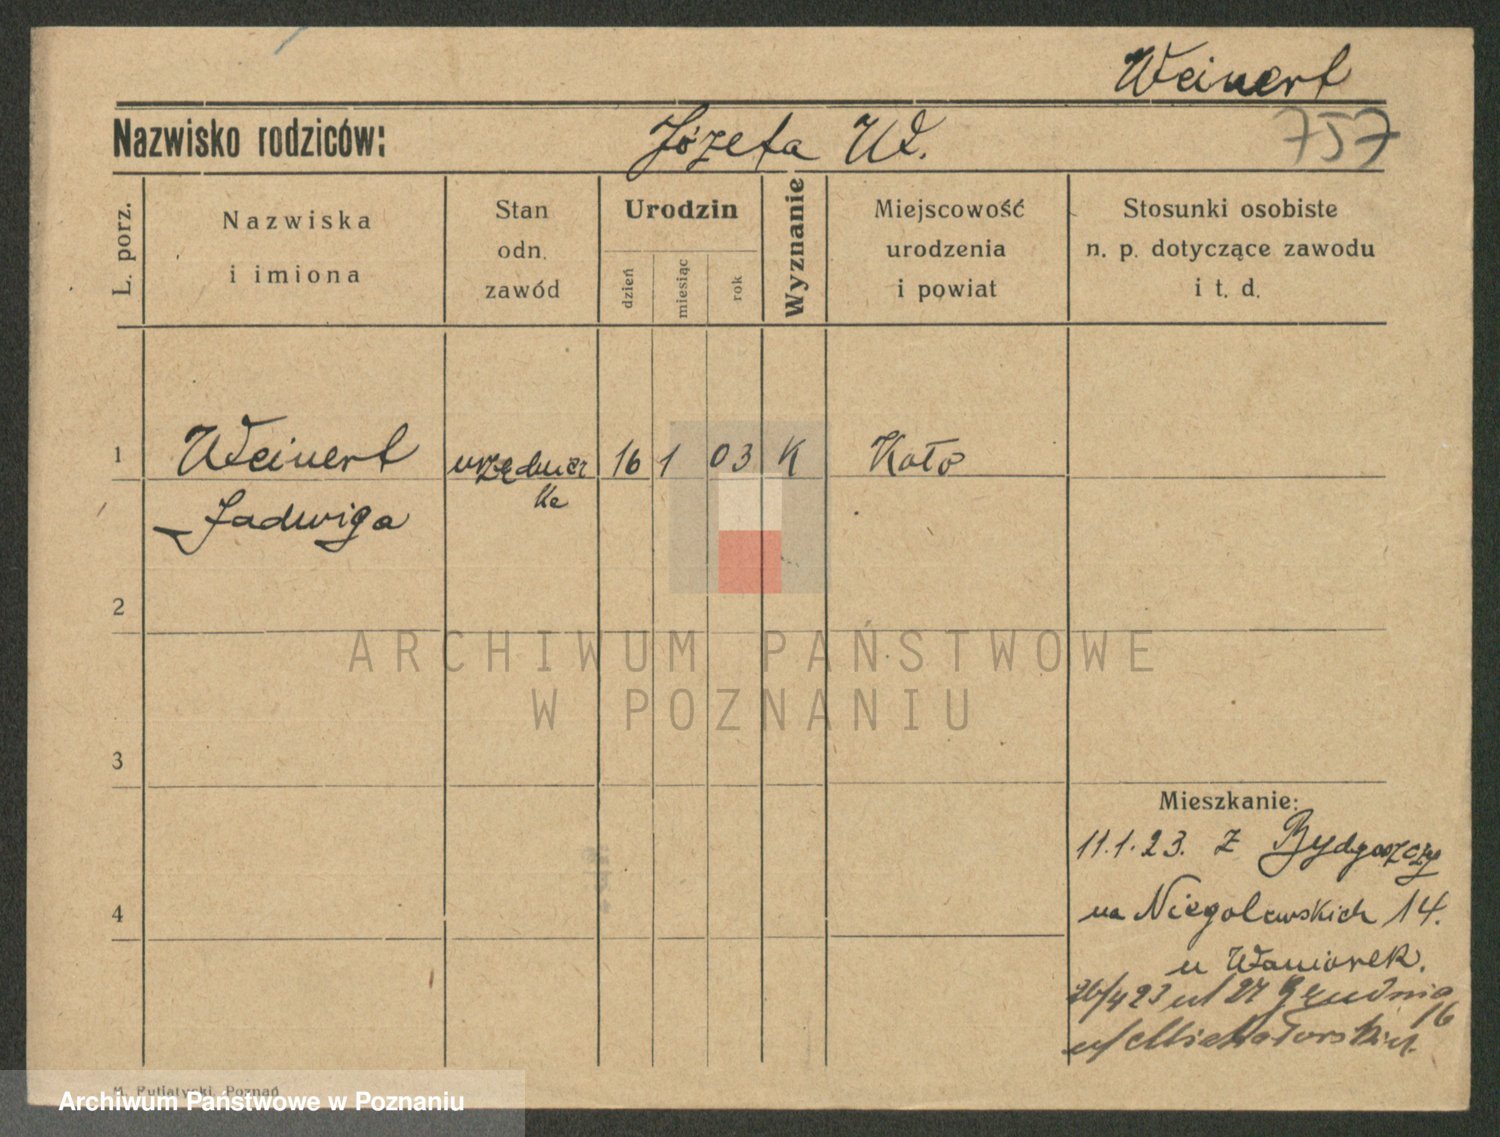 Weinert
757
Nazwisko rodziców: Józefa W.
L. porz.
Nazwiska i imiona
Stan odn. zawód
Urodzin
dzień
miesiąc
rok
Wyznanie
Miejscowość urodzenia i powiat
Stosunki osobiste n. p. dotyczące zawodu i t. d.
1 Weinert urzędnicz 16 1 03 K Koło
ka
Jadwiga
2
3
4
ARCHIWUM PAŃSTWOWE
W POZNANIU
Mieszkanie:
11.1.23. z Bydgoszczy
na Niegolewskich 14.
u Waniorek.
26/4 23 ul 27 Grudnia 16
M. Putiatycki, Poznań
Archiwum Państwowe w Poznaniu